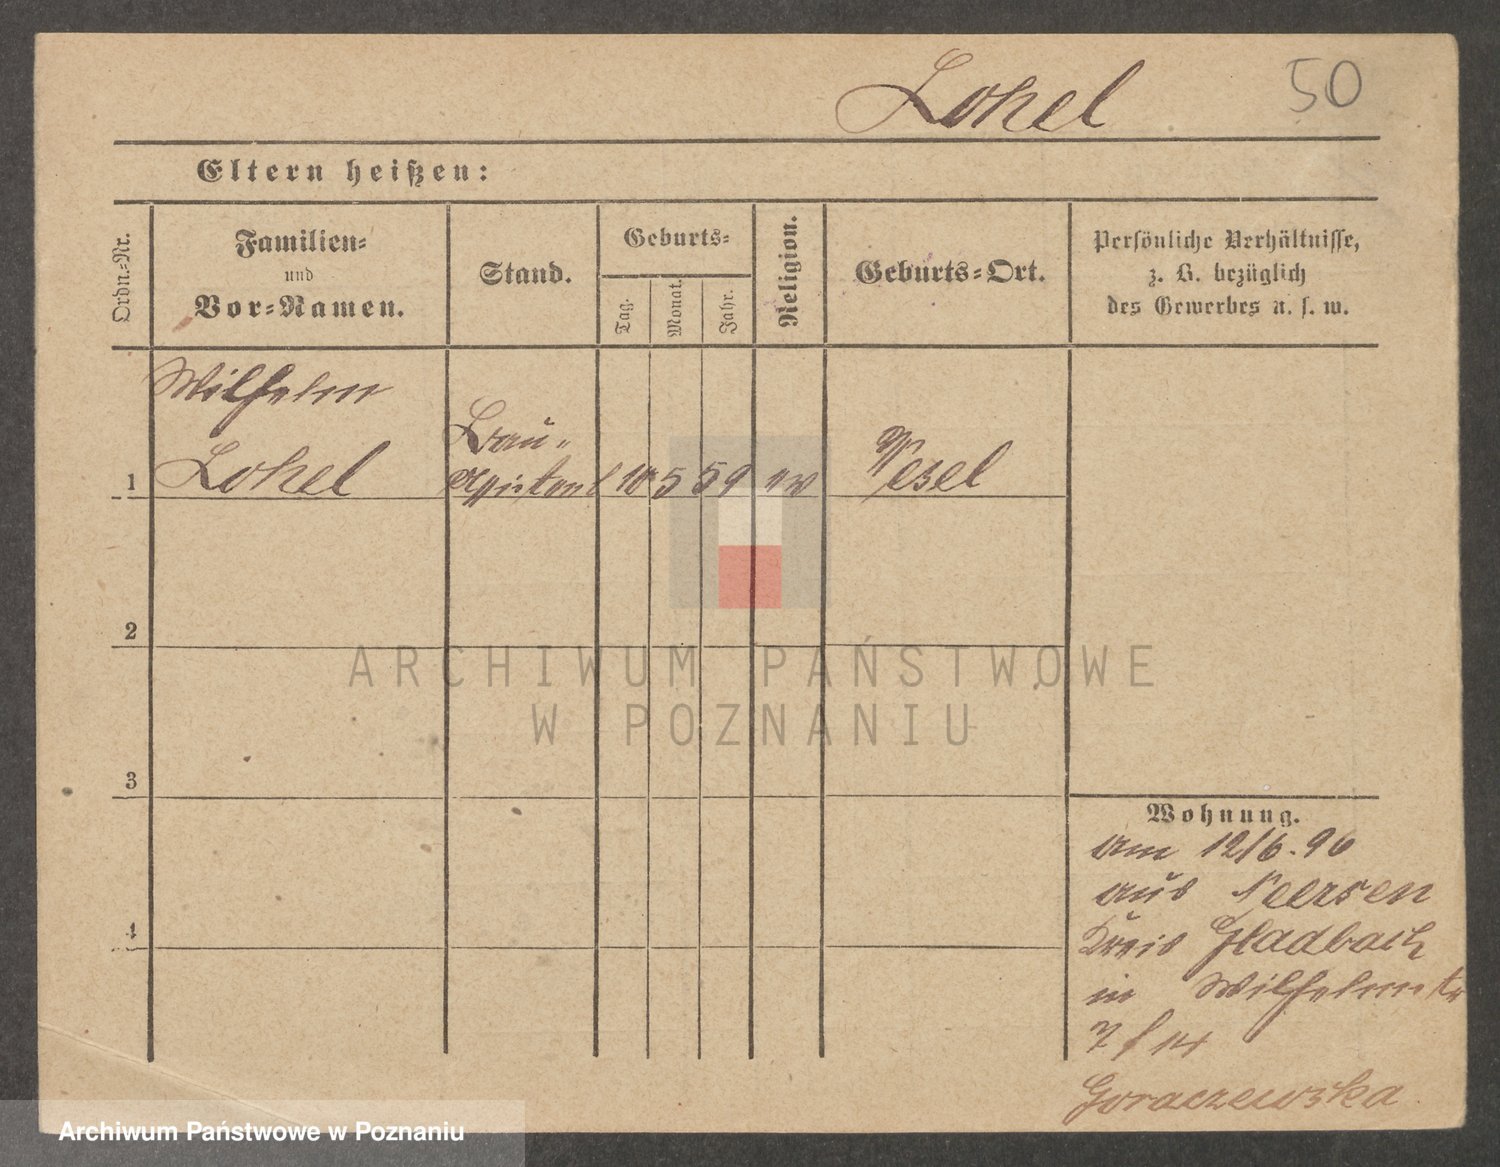 Lohel 50
Eltern heißen:
Ordn.-Nr.
Familien-
und
Vor-Namen.
Stand.
Geburts-
Tag.
Monat.
Jahr.
Religion.
Geburts-Ort.
Persönliche Verhältnisse,
z. B. bezüglich
des Gewerbes u. s. w.
Wilhelm
Lohel
Bau-
1 10 5 59 ev Wesel
2
3
4
Wohnung.
am 12/6. 96
aus Neersen
Kreis Gladbach
in
Goraczewska
ARCHIWUM PAŃSTWOWE
W POZNANIU
Archiwum Państwowe w Poznaniu